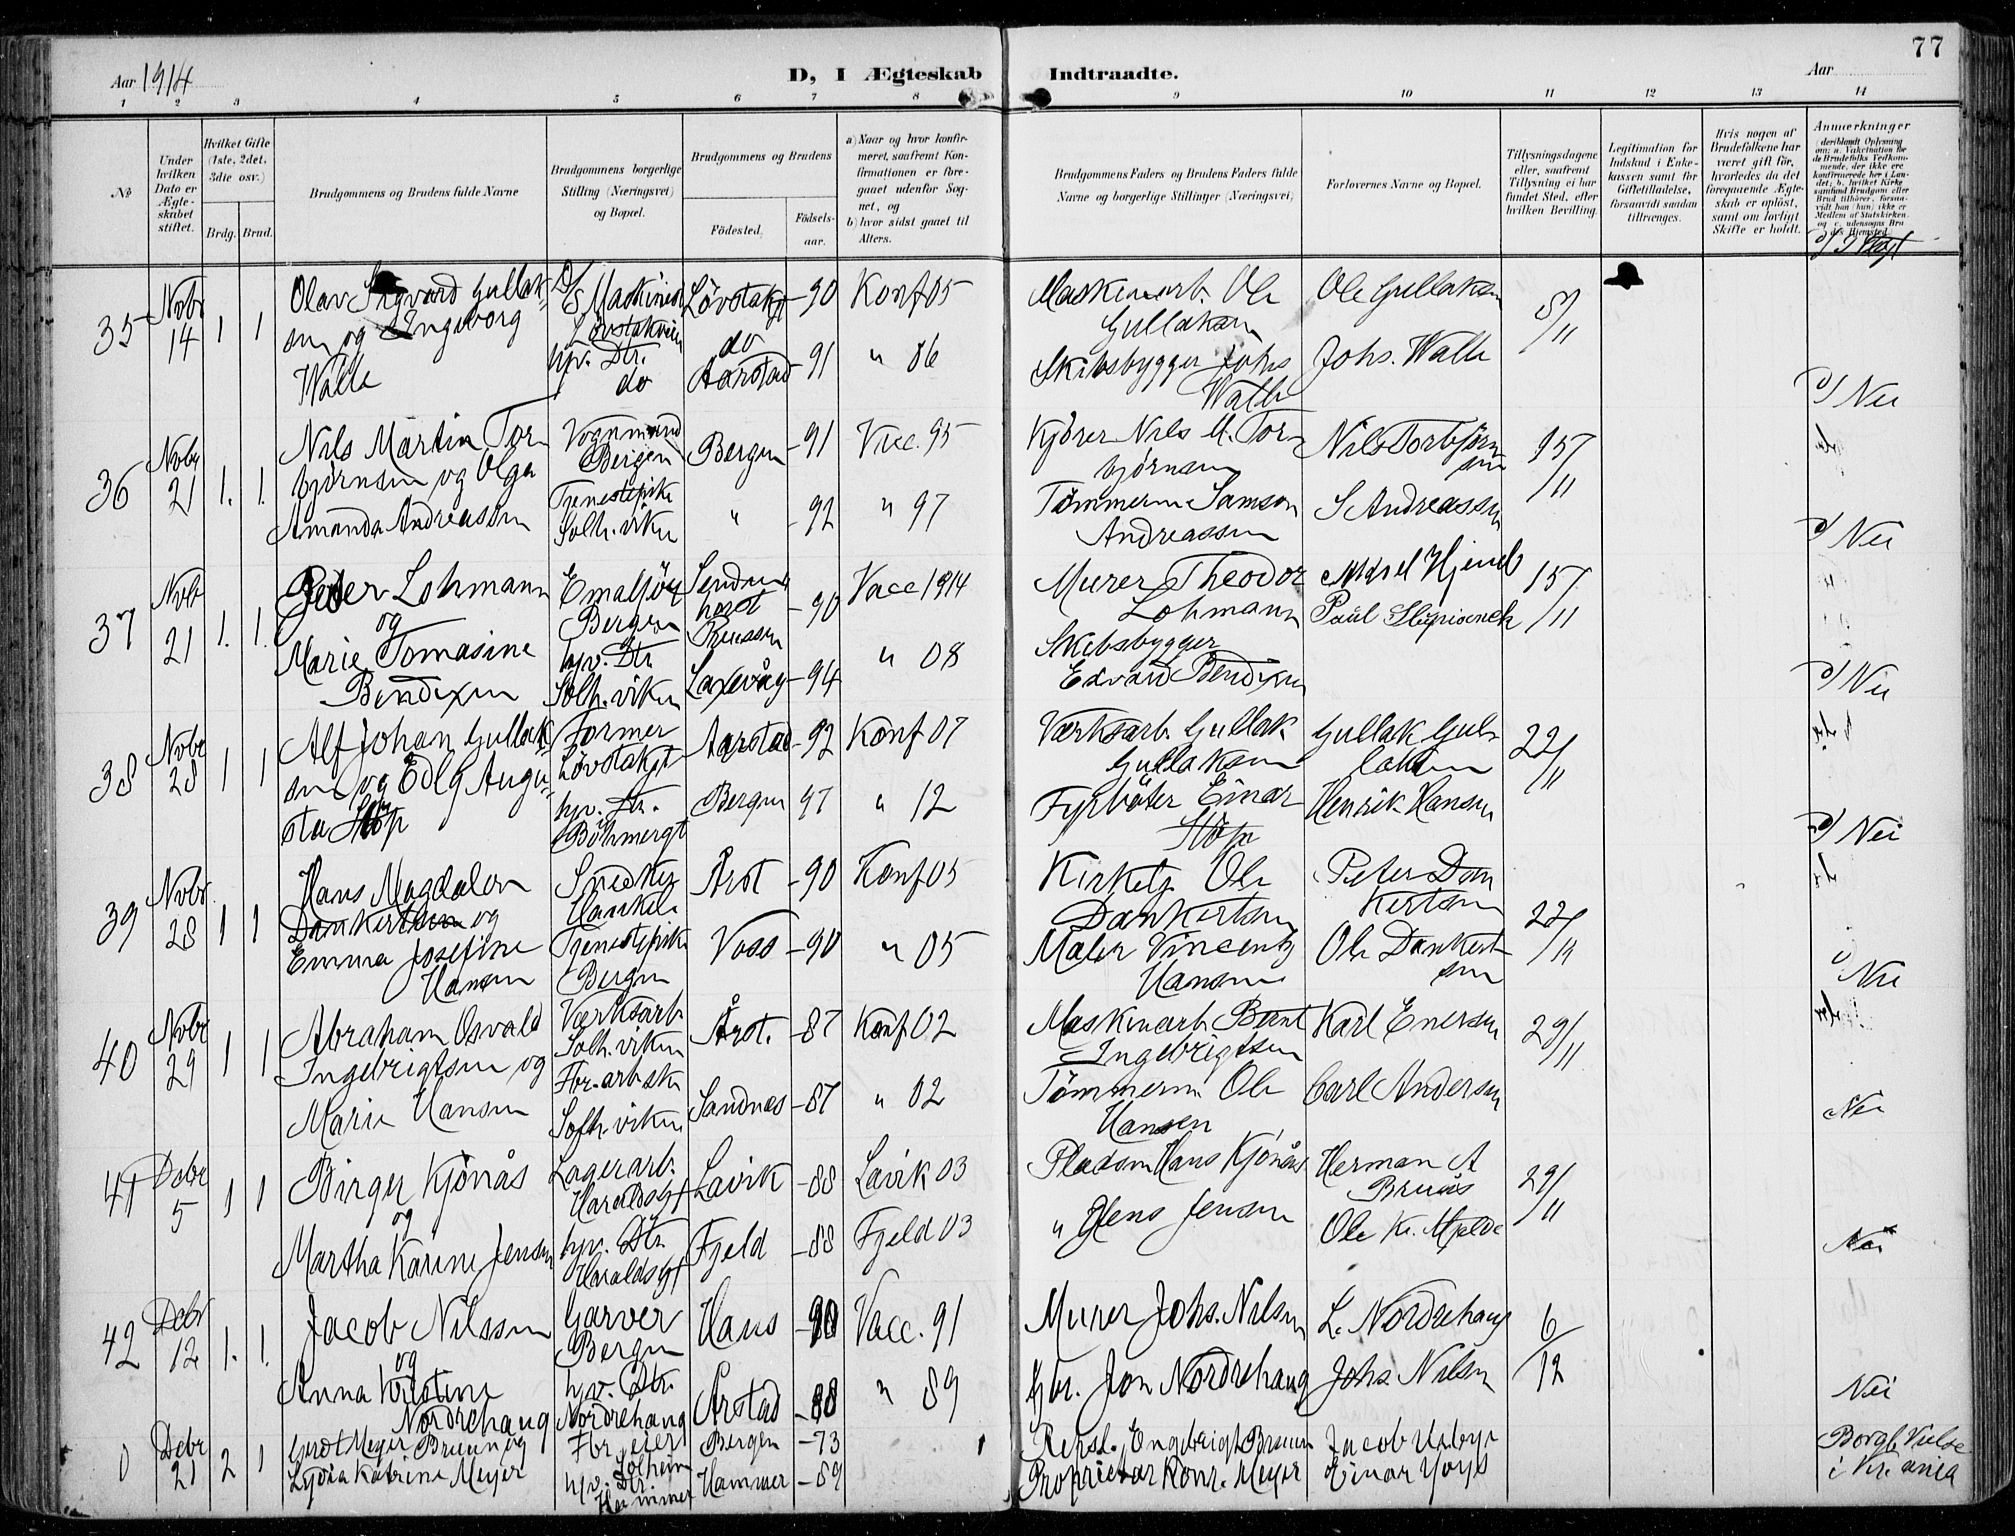 77
Aar 1914
D, I Ægteskab Indtraadte.
Aar
1 2 3 4 5 6 7 8 9 10 11 12 13 14
No
Under hvilken Dato er Ægteskabet stiftet.
Hvilket Gifte (1ste, 2det, 3die osv.)
Brdg. Brud.
Brudgommens og Brudens fulde Navne
Brudgommens borgerlige Stilling (Næringsvei) og Bopæl.
Brudgommens og Brudens
Fødested. Fødselsaar.
a) Naar og hvor konfirmeret, saafremt Konfirmationen er foregaaet udenfor Sognet, og
b) hvor sidst gaaet til Alters.
Brudgommens Faders og Brudens Faders fulde Navne og borgerlige Stillinger (Næringsvei)
Forlovernes Navne og Bopæl.
Tillysningsdagene eller, saafremt Tillysning ei har fundet Sted, efter hvilken Bevilling.
Legitimation for Indskud i Enkekassen samt for Giftetilladelse, forsaavidt saadan tiltrænges.
Hvis nogen af Brudefolkene har været gift før, hvorledes da det foregaaende Ægteskab er opløst, samt om lovligt Skifte er holdt.
Anmærkninger
35 Novbr 14 1 1
Olav Sigvard Gullaksen og Ingeborg Walle
Maskinist Løvstakveien
hjv. Dtr. do
Løvstakgt -90 Konf 05
do Aarstad -91 " 06
Maskinarb. Ole Gullaksen
Skibsbygger Johs Walle
Ole Gullaksen
Johs. Walle
8/11
Nei
36 Novbr 21 1. 1.
Nils Martin Torbjørnsen og Olga Amanda Andreassen
Vognmand Bergen
Tjenestepike Solh.viken
Bergen -91 Vacc. 95
" -92 " 97
Kjører Nils M. Torbjørnsen
Tømmerm. Samson Andreassen
Nils Torbjørnsen
S Andreassen
15/11
Nei
37 Novbr 21 1. 1.
Peter Lohmann og Marie Tomasine Bendixen
Emaljør Bergen
hjv. Dtr. Solh.viken
Sendenhorst Preussen -90 Vacc 1914
Laxevåg -94 " 08
Murer Theodor Lohmann
Skibsbygger Edvard Bendixen
15/11
Nei
38 Novbr 28 1 1
Alf Johan Gullaksen og Edle Augusta Støp
Former Løvstakgt
hjv. Dtr. Böhmergt
Aarstad -92 Konf 07
Bergen 97 " 12
Værksarb. Gullak Gullaksen
Fyrbøter Einar Støp
Gullak Gullaksen
Henrik Hansen
22/11
Nei
39 Novbr 28 1 1
Hans Magdalon Dankertsen og Emma Josefine Hansen
Snedker Haukel.
Tjenestepike Bergen
Årst -90 Konf 05
Voss -90 " 05
Kirketj. Ole Dankertsen
Maler Vincentz Hansen
Peter Dankertsen
Ole Dankertsen
22/11
Nei
40 Novbr 29 1 1
Abraham Osvald Ingebrigtsen og Marie Hansen
Værksarb. Solh.viken
Fbr.arbske Solh.viken
Årst. -87 Konf 02
Sandnæs -87 " 02
Maskinarb. Bernt Ingebrigtsen
Tømmerm. Ole Hansen
Karl Enersen
Carl Andersen
29/11
Nei
41 Debr 5 1 1
Birger Kjönås og Martha Karine Jensen
Lagerarb. Haraldsgt
hjv. Dtr. Haraldsgt
Lavik -88 Lavik 03
Fjeld -88 Fjeld 03
Pladsm Hans Kjönås
" Jens Jensen
Herman A Bruås
Ole K. Mjelde
29/11
Nei
42 Debr 12 1. 1.
Jacob Nilssen og Anna Kristine Nordrehaug
Garver Bergen
hjv. Dtr. Nordrehaug
Haus -90 Vacc. 91
Årstad -88 " 89
Murer Johs. Nilsen
Gbr. Jon Nordrehaug
L. Nordrehaug
Johs. Nilsen
6/12
Nei
0 Debr 21 2 1
Gerdt Meyer Bruun og Lydia Katrine Meyer
Fbr.eier Solheim
hjv. Dtr. Hammer
Bergen -73
Hammer -89
Repsl. Engebrigt Bruun
Proprietær Konr. Meyer
Borgl. Vielse i Kr.ania